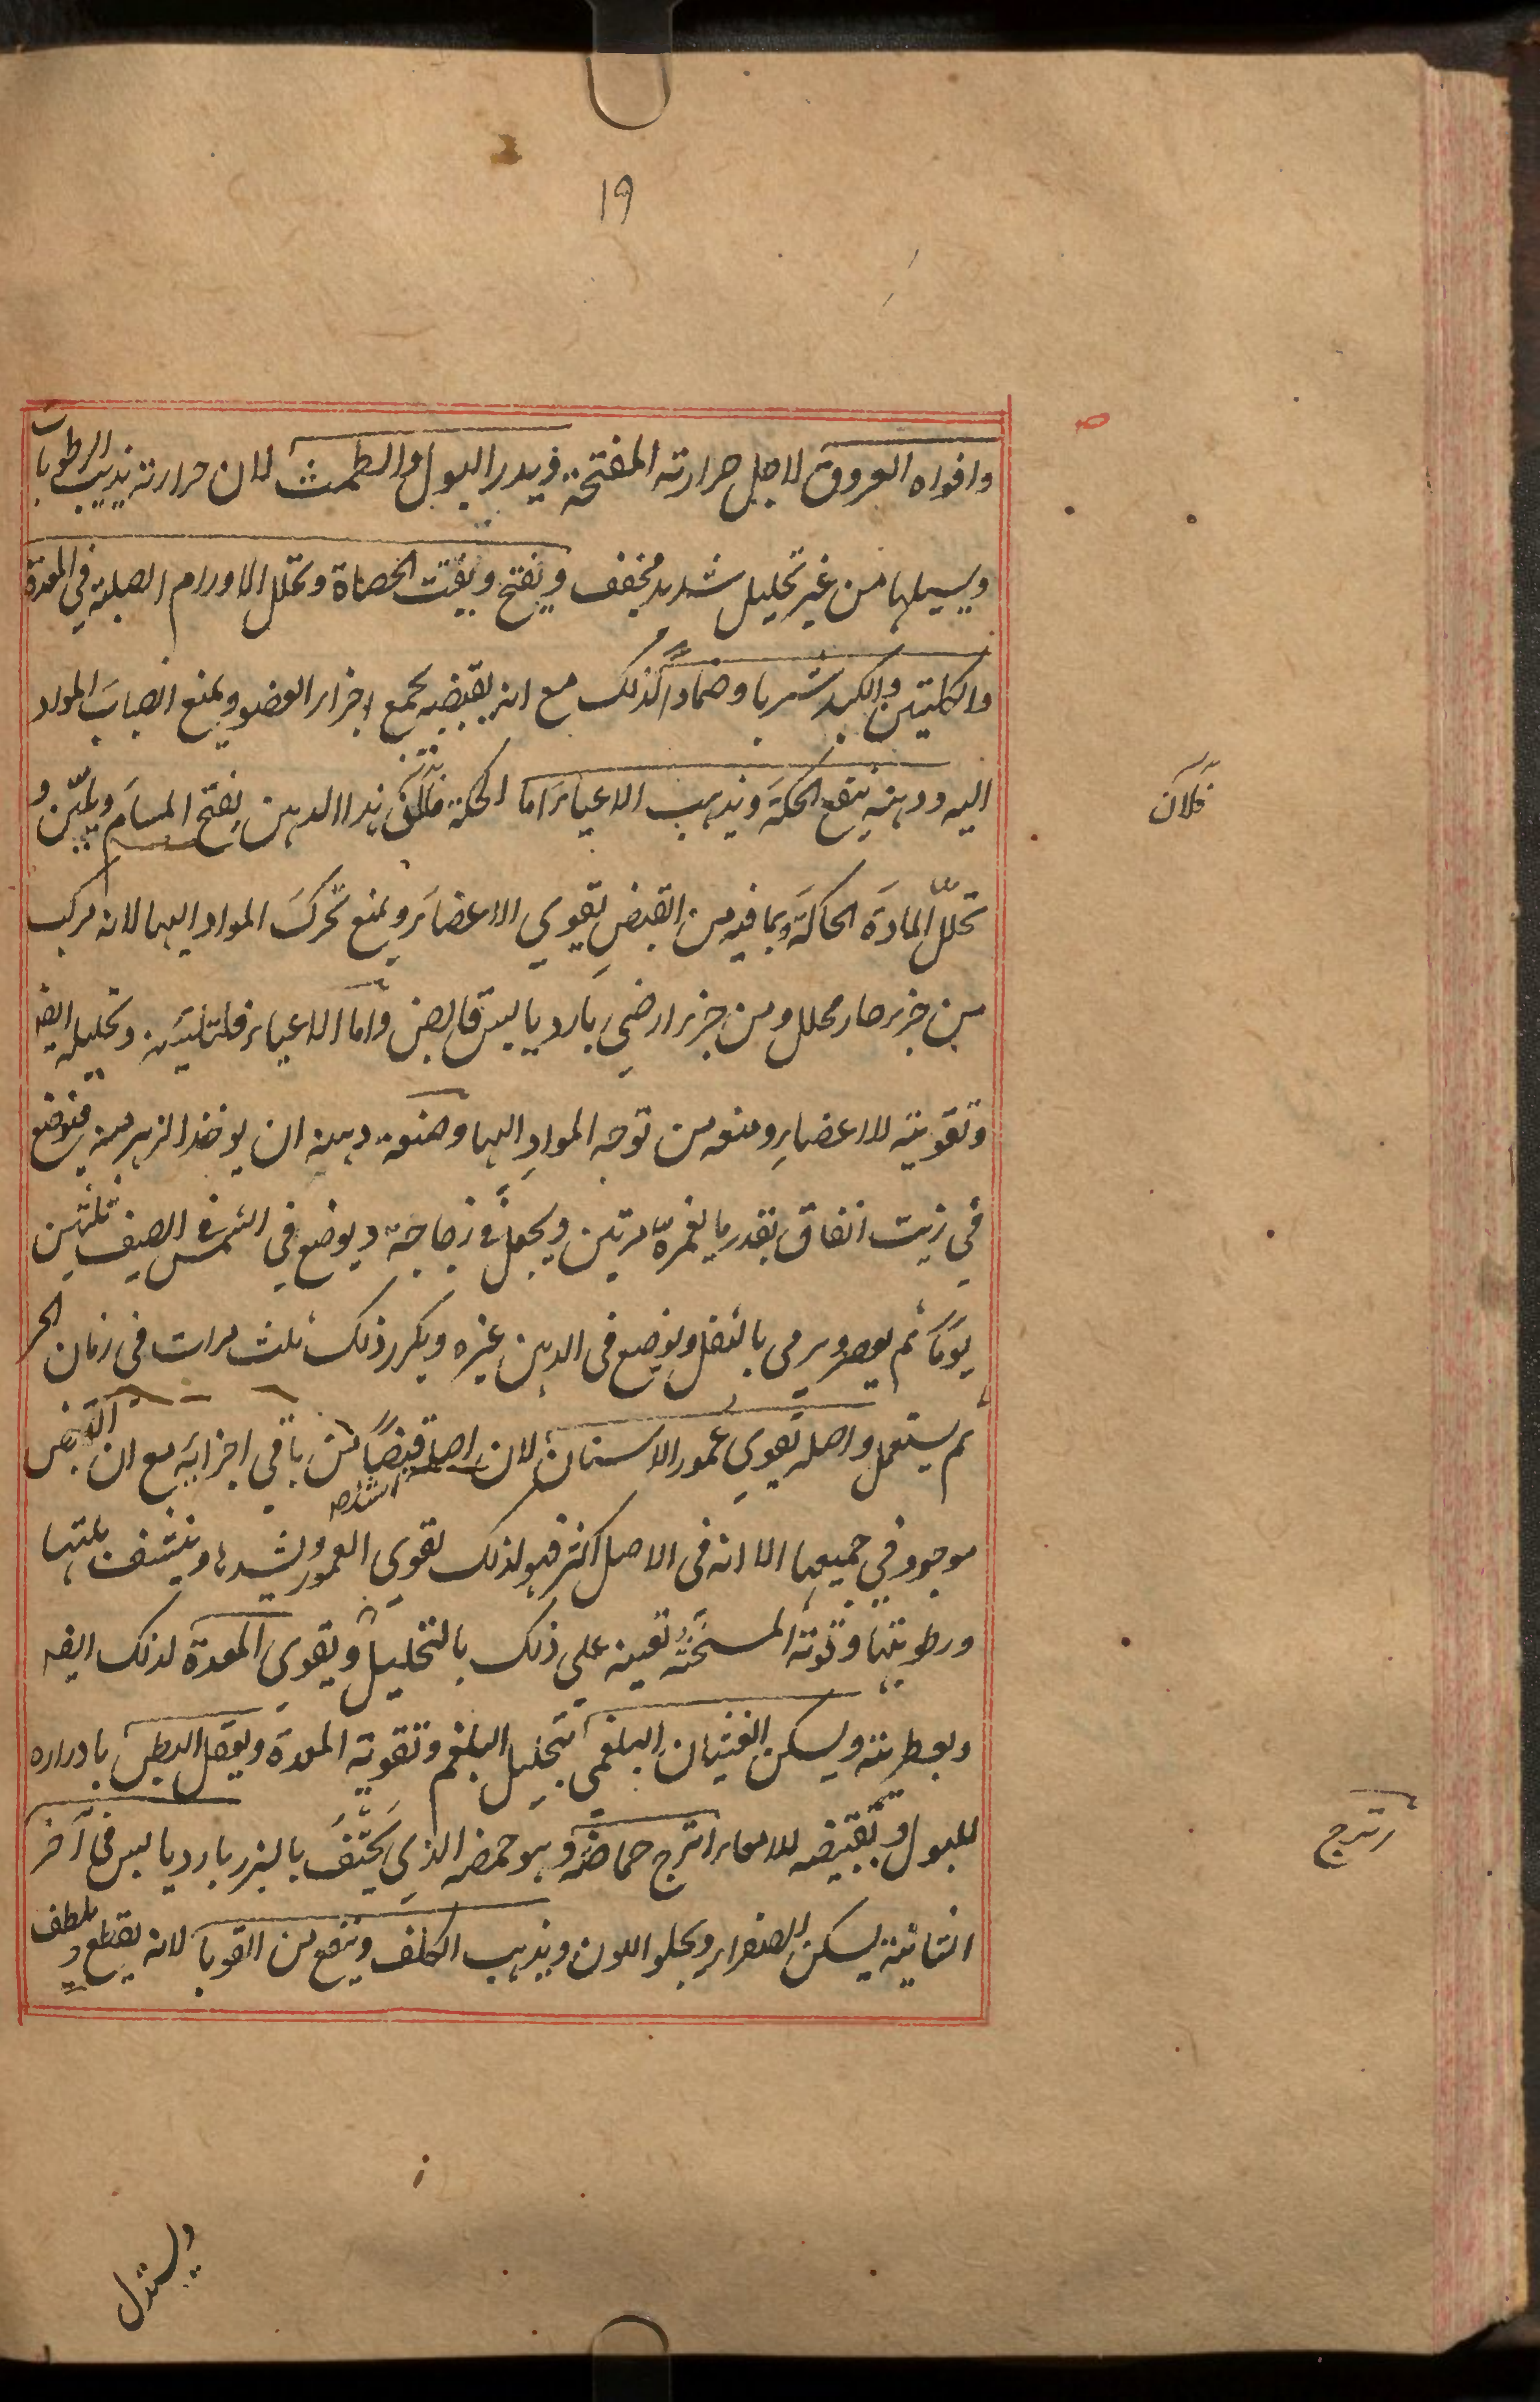 ١٩
وافواه العروق لاجل حرارته المفتحة ويدر البول والطمث لان حرارته يذيب الرطوبات
ويسيلها من غير تحليل شديد مجفف ويفتح ويفتت الحصاة وتحلل الاورام الصلبة في المعدة
والكليتين والكبد شربا وضمادا لذلك مع انه بقبضه يجمع اجزاء العضو ويمنع انصباب المواد
اليه ودهنه ينفع الحكة ويذهب الاعياء اما الحكة فلان هذا الدهن يفتح المسام ويلين و
فلان
تحلل المادة الحاكة وبما فيه من القبض يقوي الاعضاء ويمنع تحرك المواد اليها لانه مركب
من جزء حار محلل ومن جزء ارضي بارد يابس قابض واما الاعياء فلتليينه وتحليله ايضا
وتقويته للاعضاء ومنعه من توجه المواد اليها وصنعة دهنه ان يوخذ الزهر منه فيوضع
في زيت انفاق بقدر ما يغمره مرتين ويجعل في زجاجة ويوضع في الشمس في الصيف ثلثين
يوما ثم يعصر ويرمى بالثفل ويوضع في الدهن غيره ويكرر ذلك ثلث مرات في زمان الحر
ثم يستعمل واصله يقوي عمور الاسنان لان اصله اشد قبضا من باقي اجزائه مع ان القبض
موجود في جميعها الا انه في الاصل اكثر فهو لذلك يقوي العمور ويشدها وينشف بلتها
ورطوبتها وقوته المسخنة تعينه على ذلك بالتحليل ويقوي المعدة لذلك ايضا
وبعطريته ويسكن الغثيان البلغمي بتحليل البلغم وتقوية المعدة ويعقل البطن بادراره
للبول وبقبضه للامعاء اترج حماضه وهو حمضه الذي يحتف بالبزر بارد يابس في آخر
اترج
الثانية يسكن الصفراء ويجلو اللون ويذهب الكلف وينفع من القوبا لانه يقطع ويلطف
ويستدل